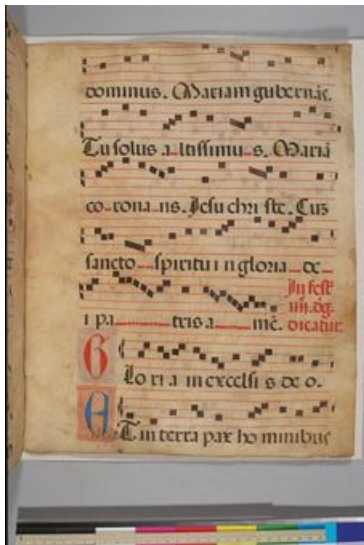 dominus. Mariam gubernãs.
Tu solus a ltissimu s. Mariã
co rona ns. Jesu chri ste. Cuʒ
sancto spiritu i n gloria de
i pa tris a mẽ.
In fest
dicatur.
Glo ri a in excelsi s de o.
Et in terra pax ho minibus